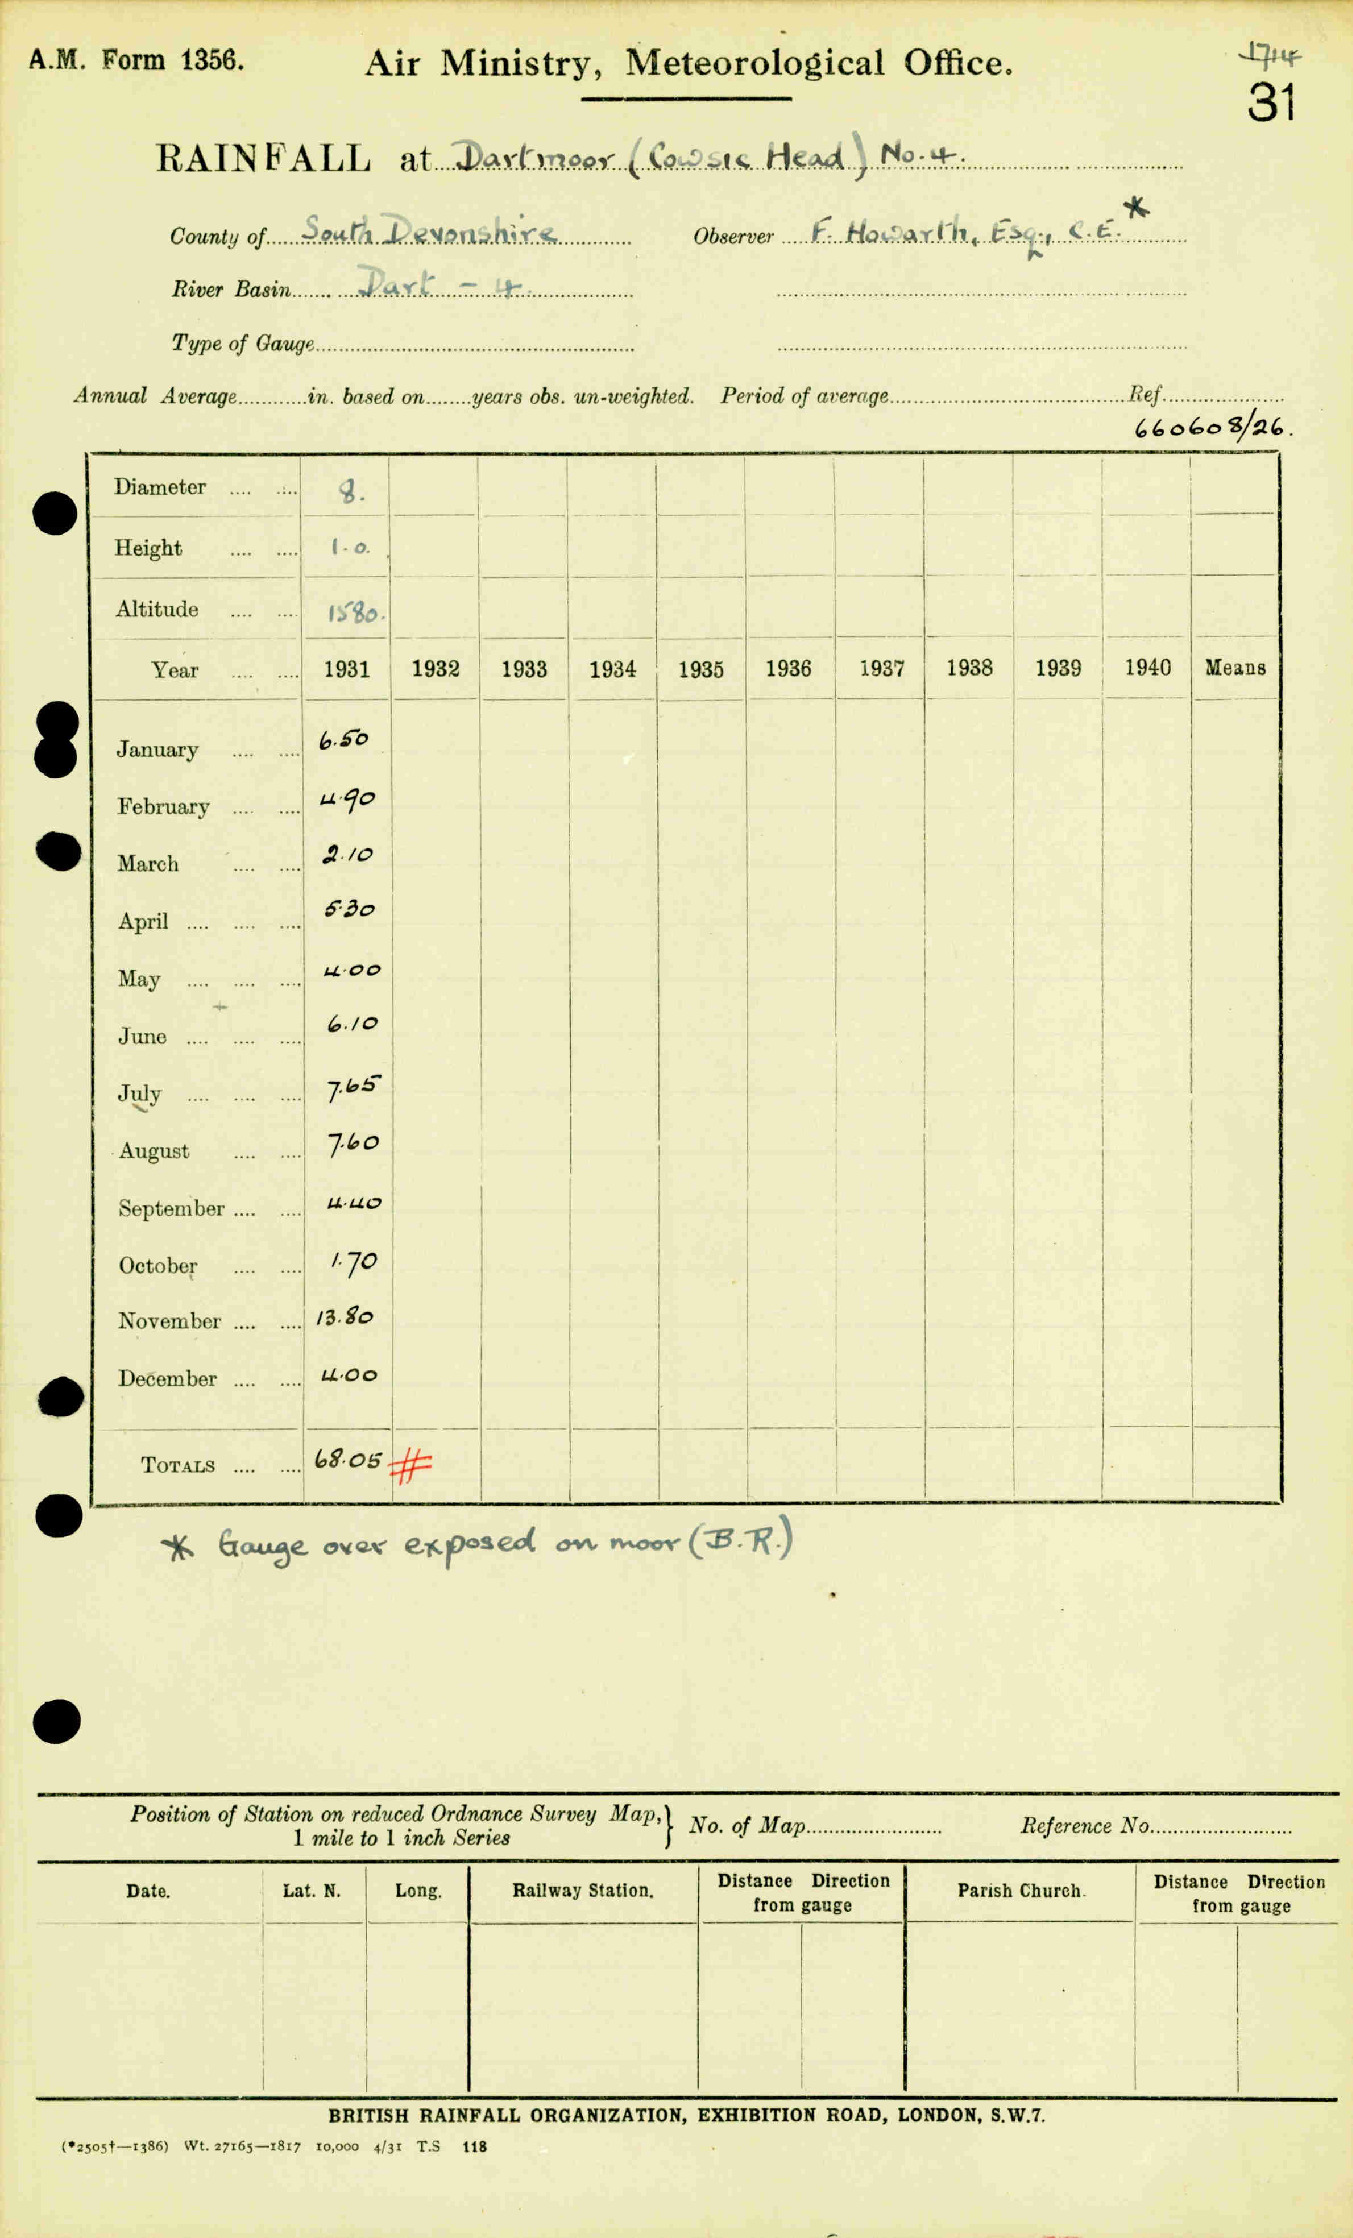 A.M. Form 1356. Air Ministry, Meteorological Office. 1714
31
RAINFALL at Dartmoor (Cowsic Head) No. 4.
County of South Devonshire Observer F. Howarth, Esq., C.E. *
River Basin Dart - 4.
Type of Gauge
Annual Average in. based on years obs. un-weighted. Period of average Ref.
660608/26.
Diameter 8.
Height 1.0.
Altitude 1580.
Year 1931 1932 1933 1934 1935 1936 1937 1938 1939 1940 Means
January 6.50
February 4.90
March 2.10
April 5.30
May 4.00
June 6.10
July 7.65
August 7.60
September 4.40
October 1.70
November 13.80
December 4.00
TOTALS 68.05 #
* Gauge over exposed on moor (B.R.)
Position of Station on reduced Ordnance Survey Map, } No. of Map Reference No.
1 mile to 1 inch Series
Date. Lat. N. Long. Railway Station. Distance Direction from gauge Parish Church. Distance Direction from gauge
BRITISH RAINFALL ORGANIZATION, EXHIBITION ROAD, LONDON, S.W.7.
(*2505†—1386) Wt. 27165—1817 10,000 4/31 T.S 118